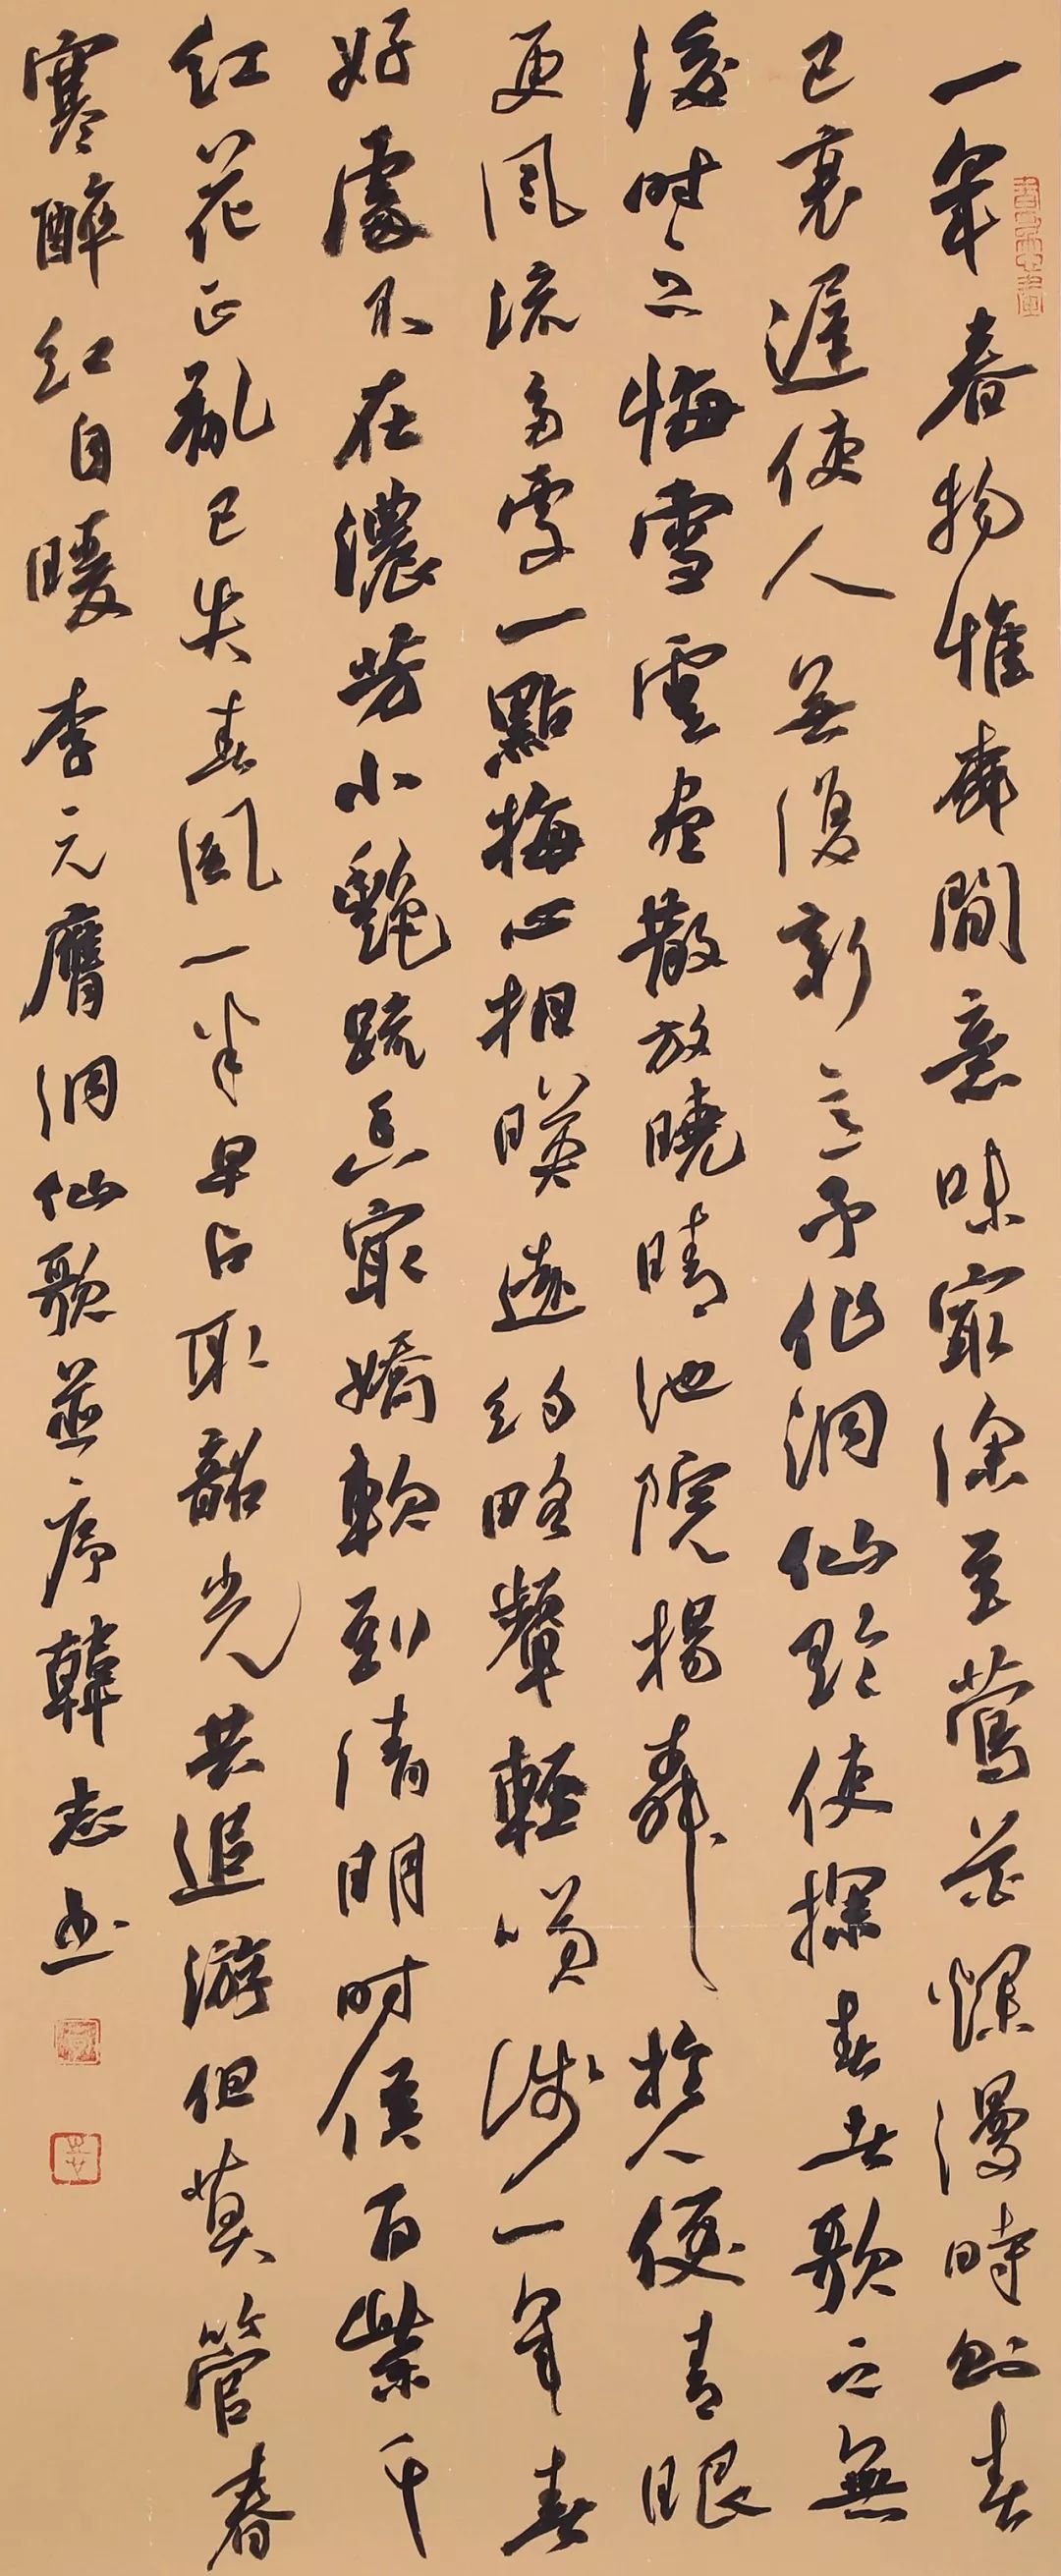 一年春物惟梅柳間意味最深至鶯花爛漫時則春
已衰遲使人無復新意予作洞仙歌使探春者歌之無
後時之悔雪雲散盡放曉晴池院楊柳於人便青眼
更風流多處一點梅心相映遠約略顰輕笑淺一年春
好處不在濃芳小艷疏香最嬌軟到清明時候百紫千
紅花正亂已失春風一半早占取韶光共追游但莫管春
寒醉紅自暖李元膺洞仙歌並序韓志書